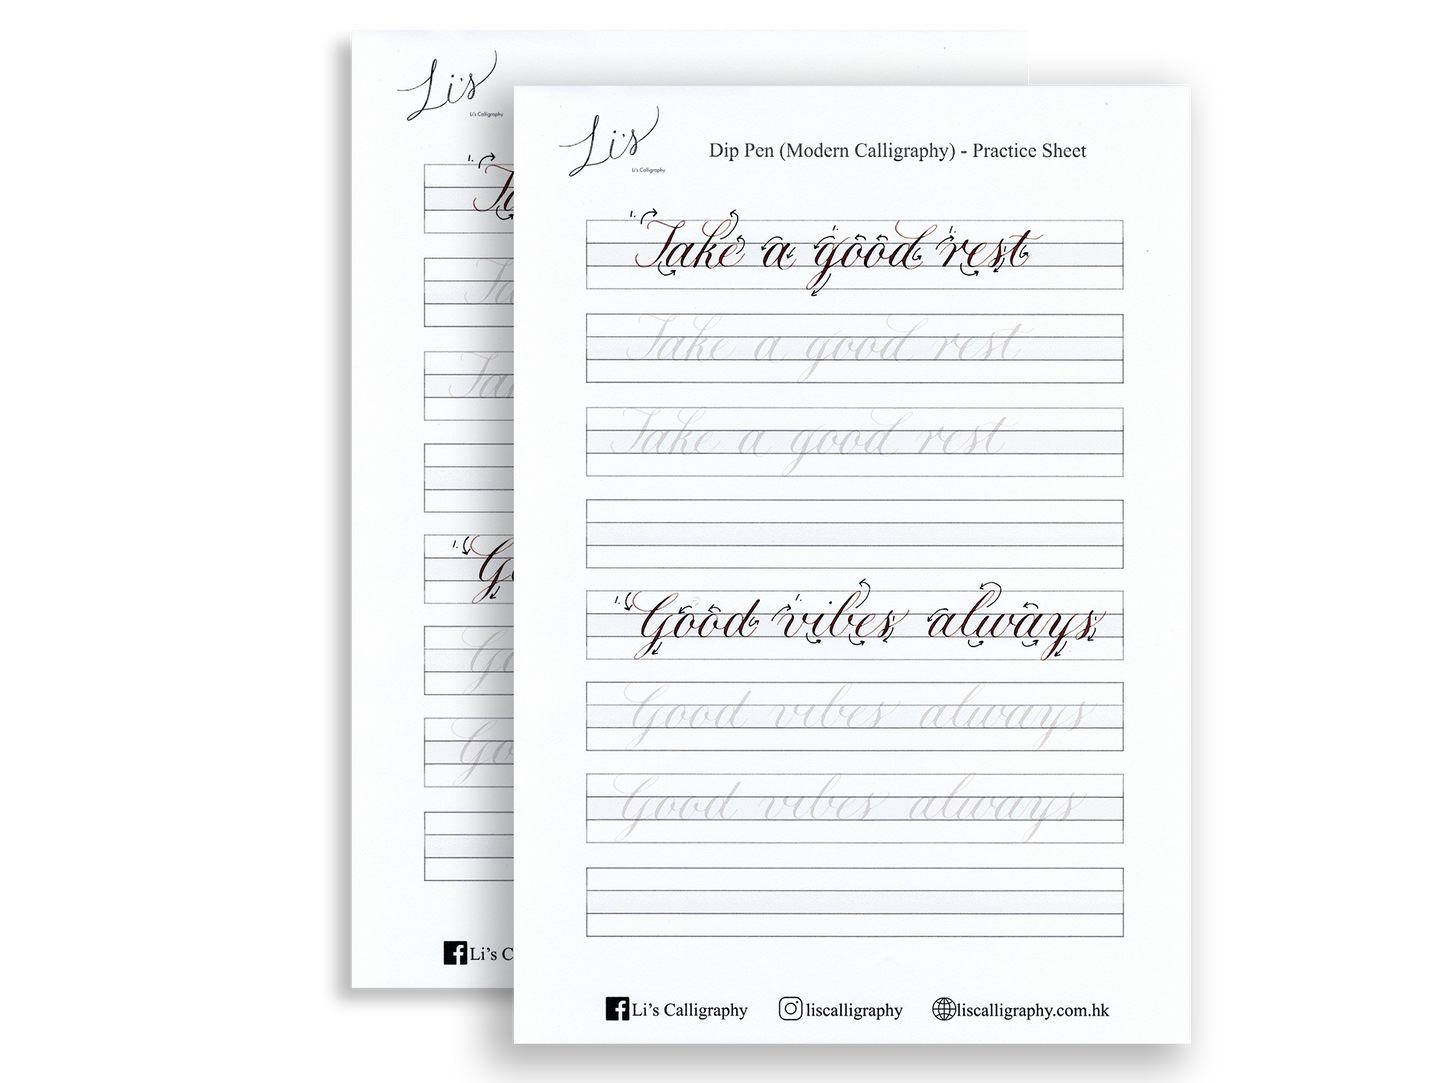 Li's
Li's Calligraphy
Li's
Li's Calligraphy
Dip Pen (Modern Calligraphy) - Practice Sheet
1.
Take a good rest
Take a good rest
Take a good rest
1.
Good vibes always
Good vibes always
Good vibes always
Li's Calligraphy
liscalligraphy
liscalligraphy.com.hk